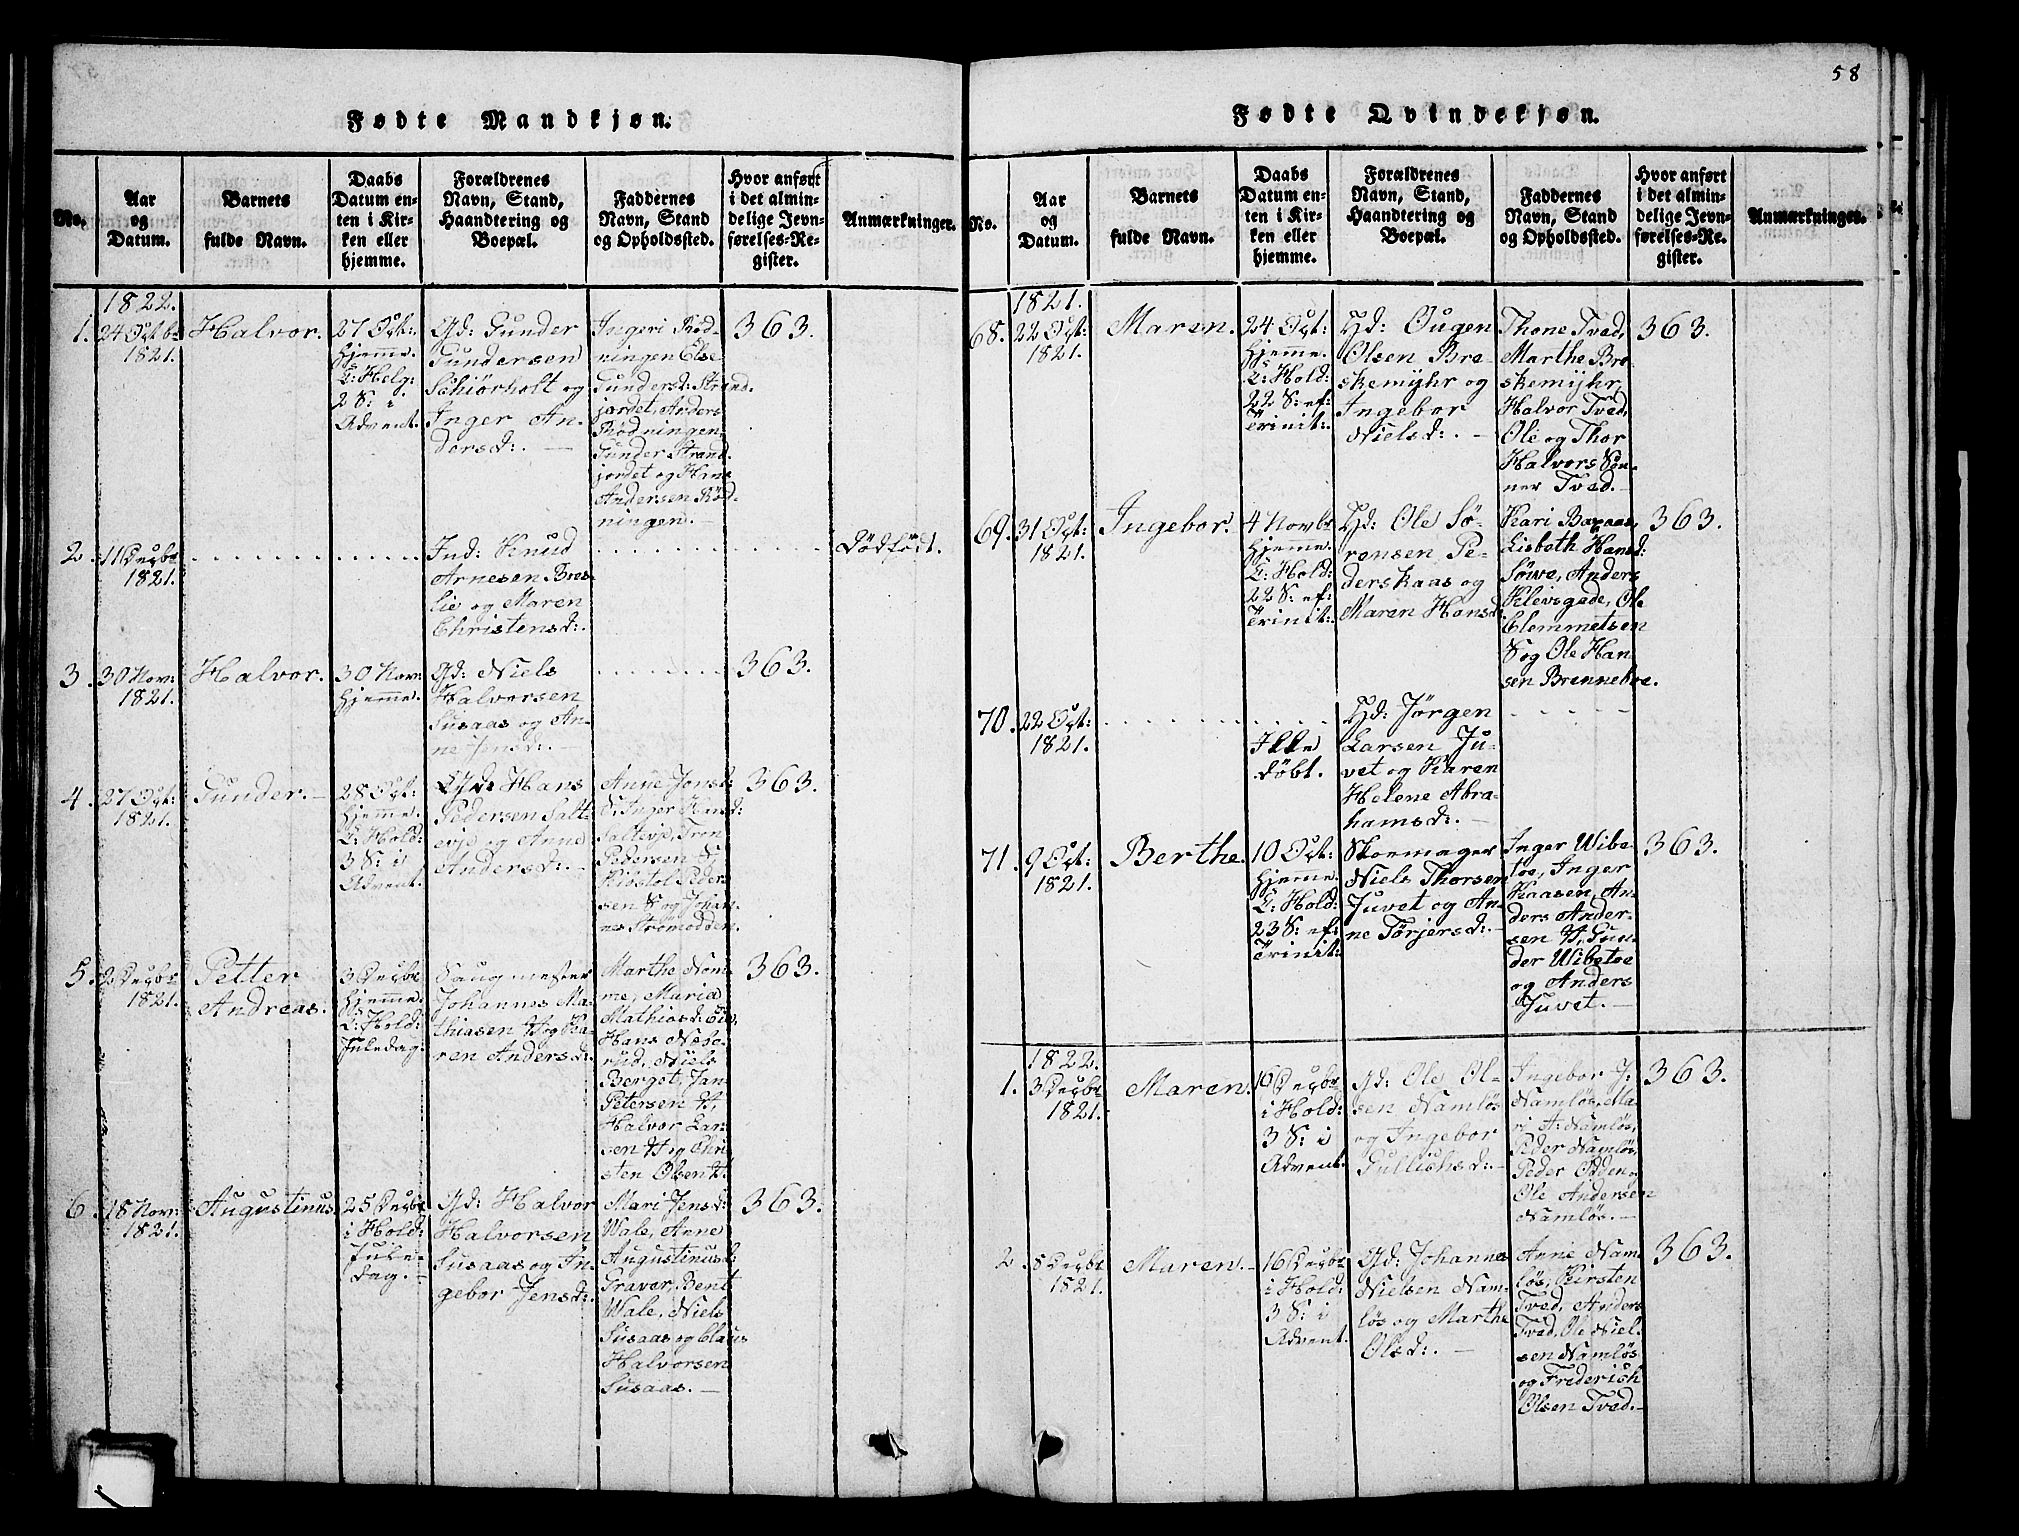 58
Fødte Mandkjøn.
No.
Aar
og
Datum.
Barnets
fulde Navn.
Daabs
Datum en-
ten i Kir-
ken eller
hjemme.
Forældrenes
Navn, Stand,
Haandtering og
Boepæl.
Faddernes
Navn, Stand
og Opholdssted.
Hvor anført
i det almin-
delige Jevn-
førelses-Re-
gister.
Anmærkninger.
1822.
1.
24 Octbr
1821.
Halvor.
27 Oct:
hjemme.
I: Helg:
2 S: i
Advent.
Gd: Gunder
Gundersen
Schiørholt og
Inger An-
dersd:. —
Ingeri Rød-
ningen, Else
Gundersd: Strand-
jordet, Anders
Rødningen,
Gunder Strand-
jordet og Hans
Andersen Rød-
ningen. —
363.
2.
11 Decbr
1821.
Ind: Knud
Arnesen Bres-
lie og Maren
Christensd:.
Dødfødt.
3.
30 Nov:
1821.
Halvor.
30 Nov:
hjemme.
Gd: Niels
Halvorsen
Susaas og An-
ne Jensd:.
363.
4.
27 Oct:
1821.
Gunder. —
28 Oct:
hjemme.
I: Hold:
3 S: i
Advent.
Hans
Pedersen Salt-
evje og Anne
Andersd:. —
Anne Jonsd:
S, Inger Hansd:
Saltevje, Tron
Pedersen S,
Kibstol Peder-
sen S og Johan-
nes Strømodden.
363.
5.
2 Decbr
1821.
Petter
Andreas.
3 Decbr
hjemme.
I: Hold:
Juledag.
Saugmester
Johannes Ma-
thiasen H og Ka-
ren Andersd:
Marthe Nom-
me, Maria
Mathiasd:
Hans Næse-
rud, Niels
Berget, Jan
Petersen H,
Halvor Lar-
sen H og Chri-
sten Olsen H.
363.
6.
18 Nov:
1821.
Augustinus
25 Decbr
i Hold:
Jule-
dag. —
Gd: Halvor
Halvorsen
Susaas og In-
gebor Jensd:.
Mari Jensd:
Wale, Anne
Augustinusd:
Graver, Bent
Wale, Niels
Susaas og Claus
Halvorsen
Susaas. —
363.
Fødte Qvindekjøn.
No.
Aar
og
Datum.
Barnets
fulde Navn.
Daabs
Datum en-
ten i Kir-
ken eller
hjemme.
Forældrenes
Navn, Stand,
Haandtering og
Boepæl.
Faddernes
Navn, Stand
og Opholdssted.
Hvor anført
i det almin-
delige Jevn-
førelses-Re-
gister.
Anmærkninger.
1821.
68.
22 Oct:
1821.
Maren.
24 Oct:
hjemme.
I: Hold:
22 S: ef:
Trinit:
Hd: Ougen
Olsen Bre-
skemyhr og
Ingebor
Nielsd:. —
Thone Tved,
Marthe Bre-
skemyhr,
Halvor Tved,
Ole og Thor
Halvors Søn-
ner Tved. —
363.
69.
31 Oct:
1821.
Ingebor.
4 Novbr
hjemme.
I: Hold:
22 S: ef:
Trinit:
Hd: Ole Sø-
rensen Pe-
derskaas og
Maren Hansd:
Kari Baraas,
Lisbeth Hansd:
Søwe, Anders
Klevsgade, Ole
Clemmetsen
S og Ole Han-
sen Brenneboe.
363.
70.
22 Oct:
1821.
Ikke
døbt.
Hd: Jørgen
Larsen Ju-
vet og Karen
Helene Abra-
hamsd:. —
71.
9 Oct:
1821.
Berthe.
10 Oct:
hjemme.
I: Hold:
23 S: ef:
Trinit:
Skoemager
Niels Thorsen
Juvet og An-
ne Torjersd:. —
Inger Wibe-
toe, Inger
Kaasen, An-
ders Ander-
sen H, Gun-
der Wibetoe
og Anders
Juvet. —
363.
1822.
1.
3 Decbr
1821.
Maren.
16 Decbr
i Hold:
3 S: i
Advent.
Gd: Ole Ol-
sen Namløs
og Ingebor
Gullichsd: —
Ingebor J:
Namløs, Ma-
ri A: Namløs,
Peder Namløs,
Peder Odden og
Ole Andersen
Namløs. —
363.
2.
8 Decbr
1821.
Maren. —
16 Decbr
i Hold:
3 S: i
Advent.
Gd: Johannes
Nielsen Nam-
løs og Marthe
Olsd:. —
Anne Nam-
løs, Kirsten
Tved, Anders
Tved, Ole Niel-
sen Namløs
og Frederich
Olsen Tved. —
363.